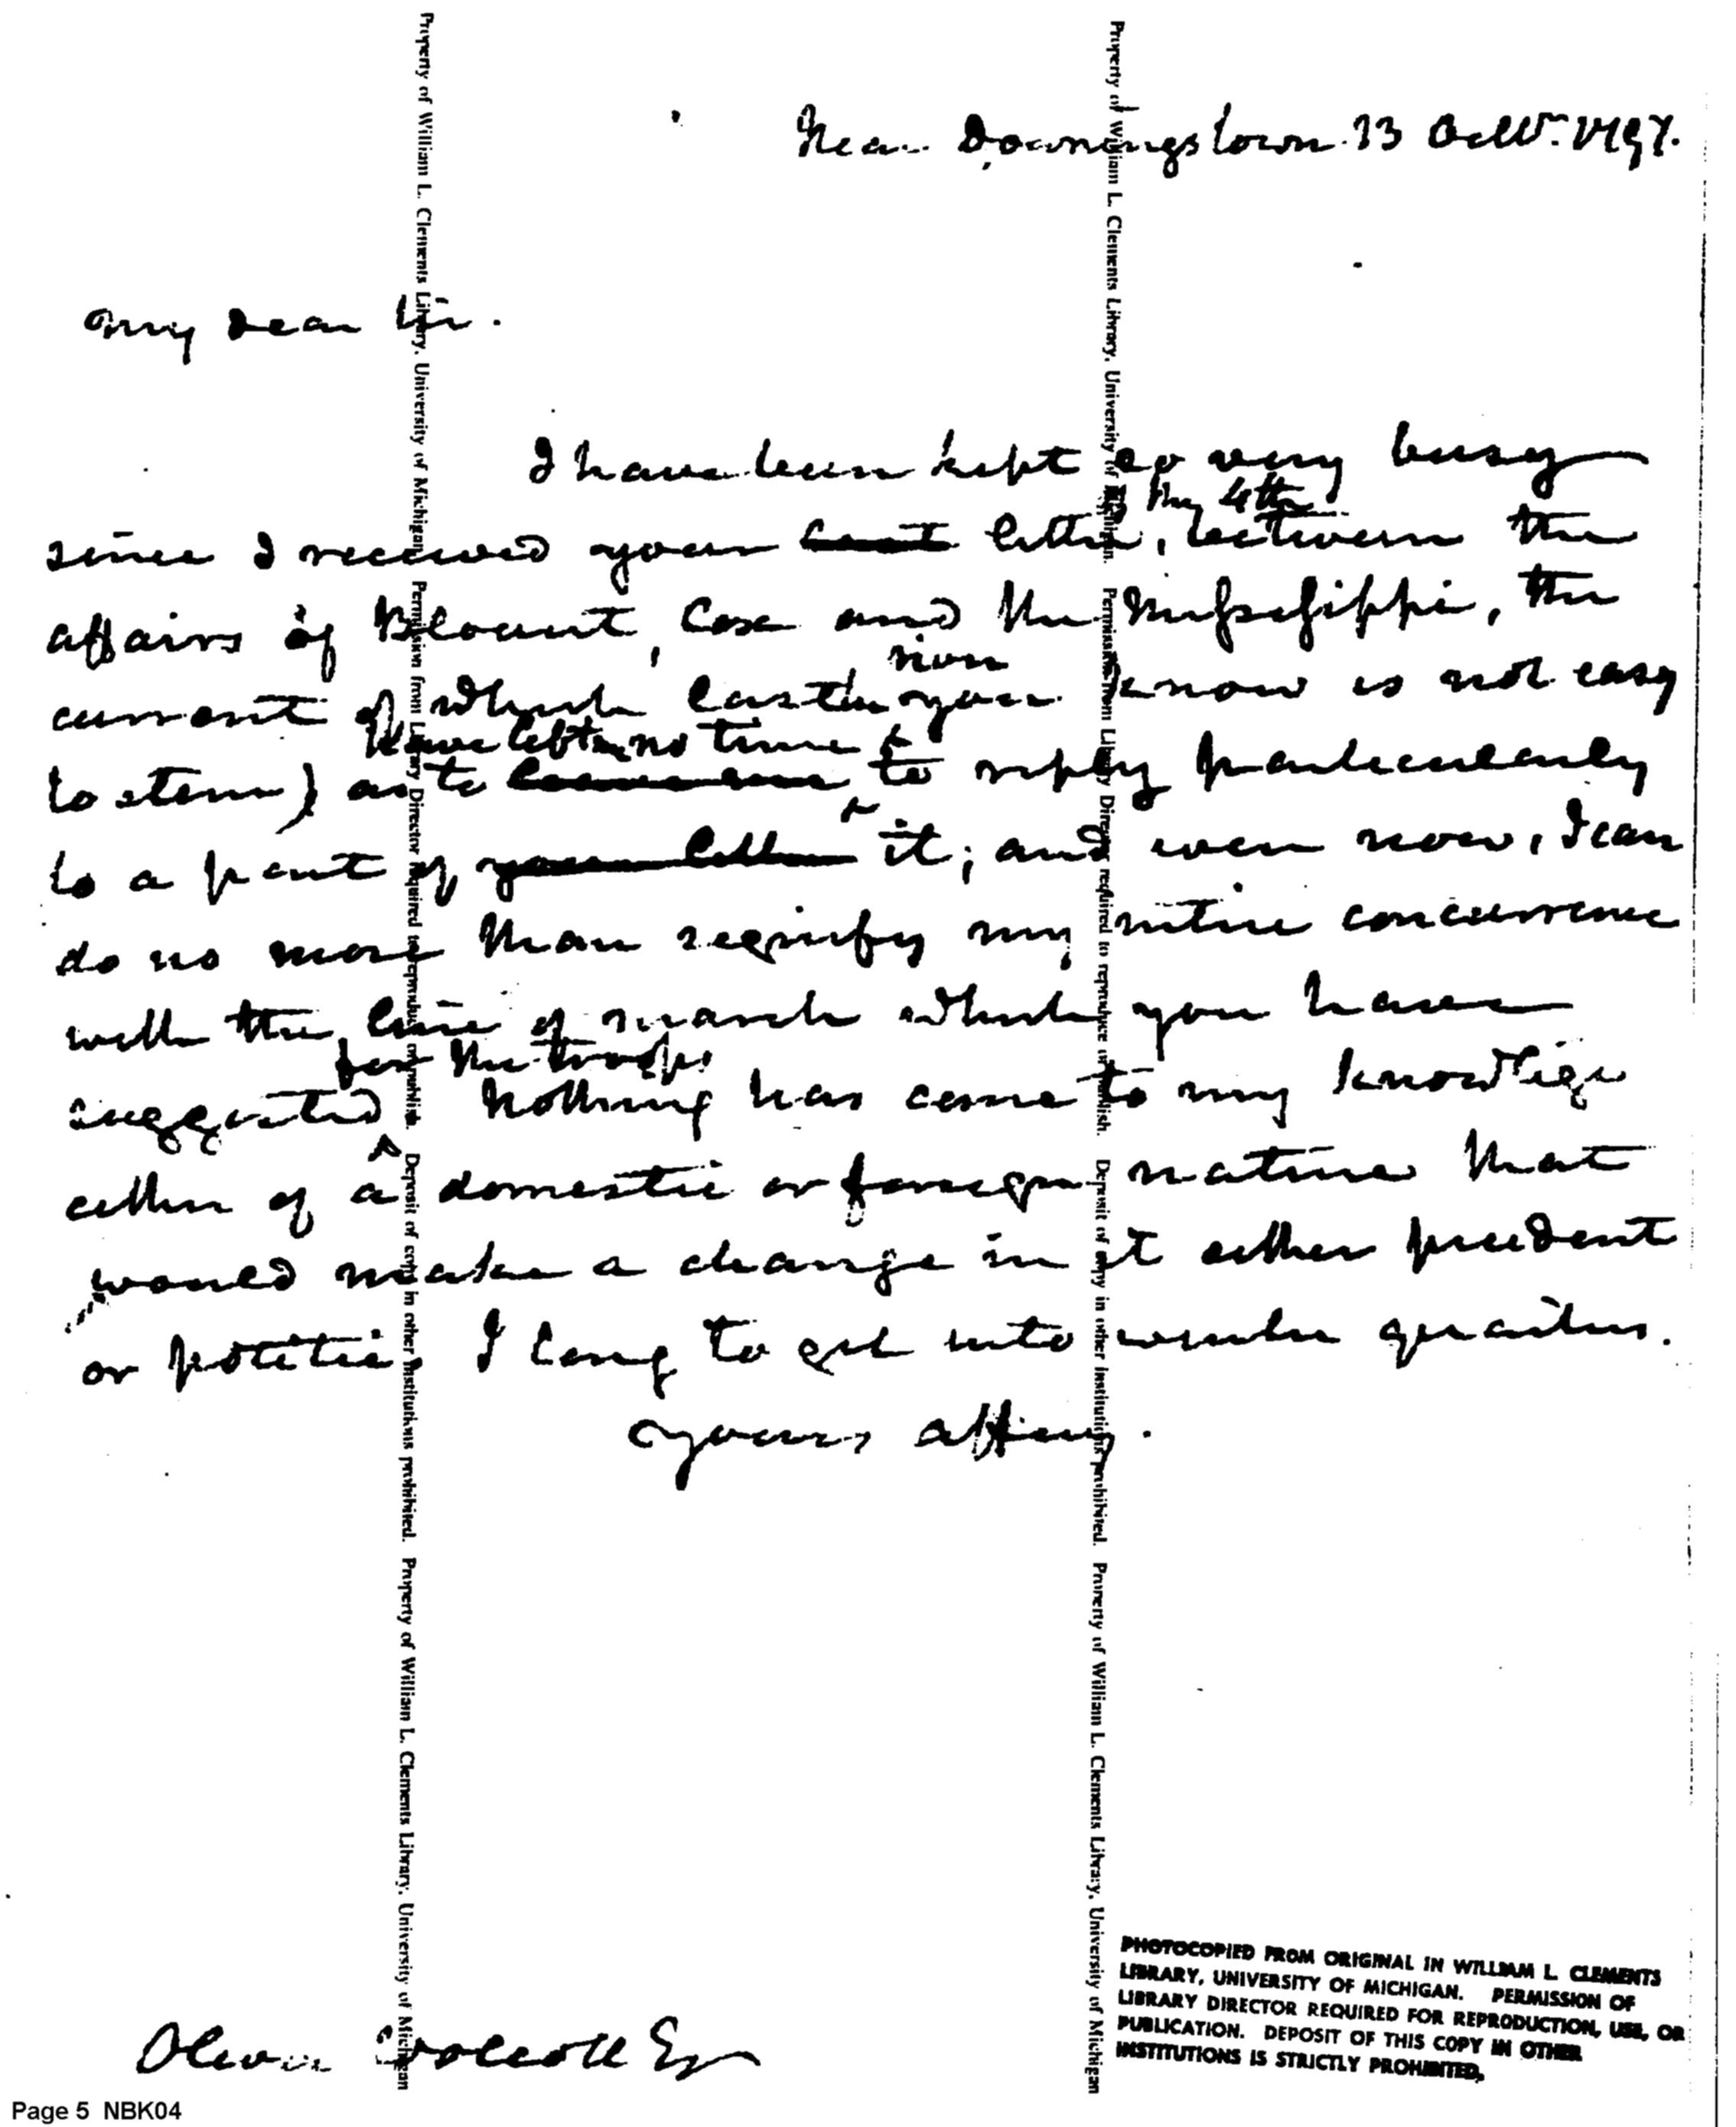 Near Downingstown 13 Octbr. 1797.
My dear Sir.
I have been kept so very busy
by the 4th
since I received your letter, between the
affairs of Blount, Cox and the Missisippi, the
current of which last you know is not easy
have left me no time
to stem) as to to reply particularly
to a part of your letter it; and even now, I can
do no more than signify my entire concurrence
with the line of march which you have
for the troops
suggested Nothing has come to my knowlege
either of a domestic or foreign nature that
would make a change in it either prudent
or politic. I long to get into winter quarters.
Yours affiy.
Oliver Wolcott Esqr
Property of William L. Clements Library, University of Michigan. Permission from Library Director required to reproduce or publish. Deposit of copy in other institutions prohibited. Property of William L. Clements Library, University of Michigan
Property of William L. Clements Library, University of Michigan. Permission from Library Director required to reproduce or publish. Deposit of copy in other institutions prohibited. Property of William L. Clements Library, University of Michigan
PHOTOCOPIED FROM ORIGINAL IN WILLIAM L. CLEMENTS
LIBRARY, UNIVERSITY OF MICHIGAN. PERMISSION OF
LIBRARY DIRECTOR REQUIRED FOR REPRODUCTION, USE, OR
PUBLICATION. DEPOSIT OF THIS COPY IN OTHER
INSTITUTIONS IS STRICTLY PROHIBITED.
Page 5 NBK04